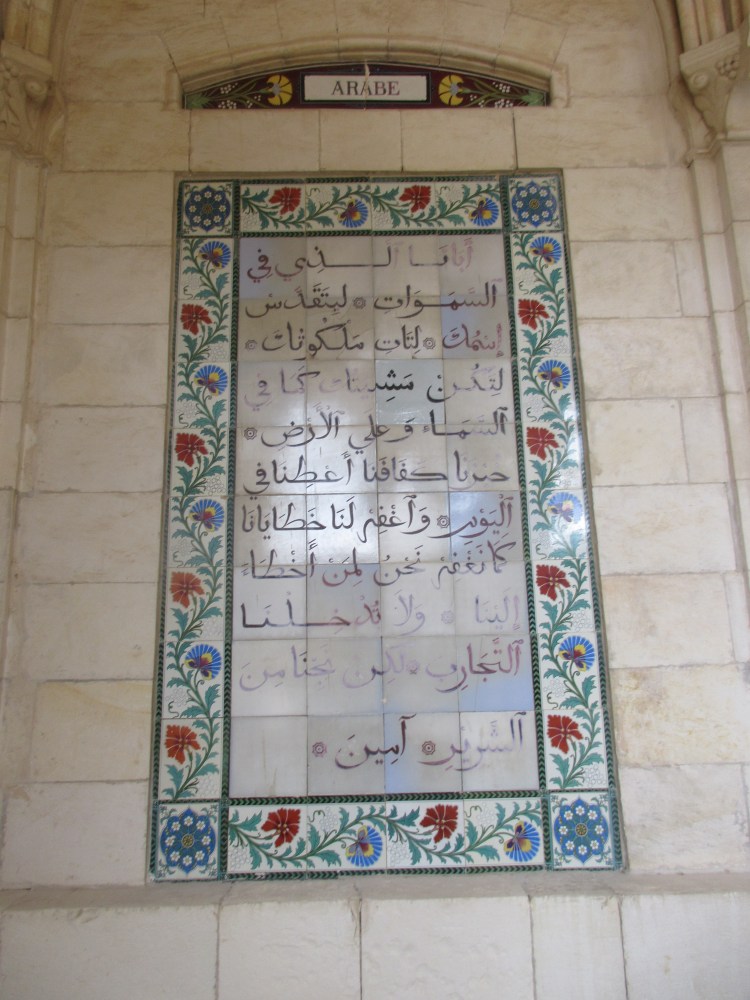 ARABE
أَبَانَا الَّذِي فِي
السَّمَوَات * لِيَتَقَدَّسْ
إِسْمُكَ * لِتَأْتِ مَلَكُوتُكَ *
لِتَكُنْ مَشِيئَتُكَ كَمَا فِي
السَّمَاء وَعَلَى الْأَرْضِ *
خبزنا كفافنا أَعْطِنَا فِي
الْيَوْمِ * وَاغْفِرْ لَنَا خَطَايَانَا
كَمَا نَغْفِرُ نَحْنُ لِمَنْ أَخْطَاءَ
إِلَيْنَا * وَلَا تُدْخِلْنَا
التَّجَارِبِ * لَكِنْ نَجِّنَا مِنَ
الشِّرِّيرِ * آمِينَ *